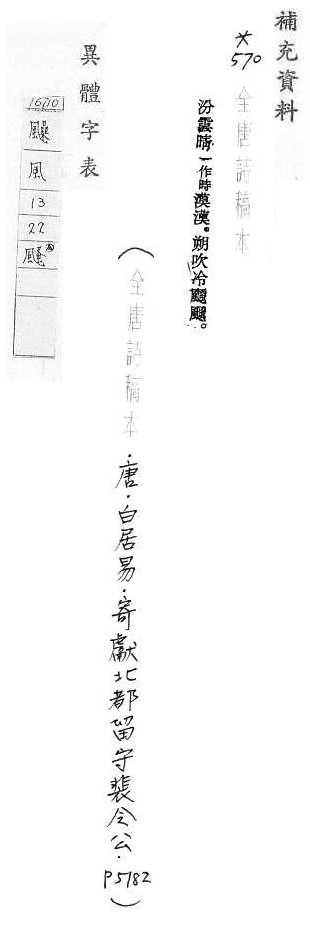 補充資料
*570
全唐詩稿本
汾雲晴一作時漠漠。朔吹冷颸颸。
(全唐詩稿本.唐.白居易.寄獻北都留守裴令公.P5782)
異體字表
1670
風
13
22